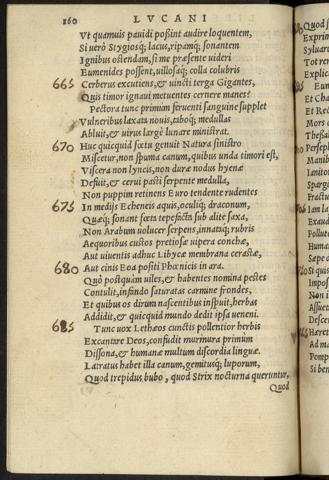 160 LVCANI
Vt quamuis pauidi possint audire loquentem,
Si uerò Stygiosq; lacus, ripamq; sonantem
Ignibus ostendam, si me præsente uideri
Eumenides possent, uillosaq; colla colubris
665 Cerberus excutiens, & uincti terga Gigantes,
Quis timor ignaui metuentes cernere manes?
Pectora tunc primùm feruenti sanguine supplet
Vulneribus laxata nouis, taboq; medullas
Abluit, & uirus largè lunare ministrat.
670 Huc quicquid fœtu genuit Natura sinistro
Miscetur, non spuma canum, quibus unda timori est,
Viscera non lyncis, non duræ nodus hyenæ
Defuit, & cerui pasti serpente medulla,
Non puppim retinens Euro tendente rudentes
675 In medijs Echeneis aquis, oculiq; draconum,
Quæq; sonant fœta tepefacta sub alite saxa,
Non Arabum uolucer serpens, innataq; rubris
Aequoribus custos pretiosæ uipera conchæ,
Aut uiuentis adhuc Libycæ membrana cerastæ,
680 Aut cinis Eoa positi Phœnicis in ara.
Quò postquàm uiles, & habentes nomina pestes
Contulit, infando saturatas carmine frondes,
Et quibus os dirum nascentibus inspuit, herbas
Addidit, & quicquid mundo dedit ipsa ueneni.
685 Tunc uox Lethæos cunctis pollentior herbis
Excantare Deos, confudit murmura primùm
Dissona, & humanæ multum discordia linguæ.
Latratus habet illa canum, gemitusq; luporum,
Quod trepidus bubo, quod Strix nocturna queruntur,
Quod